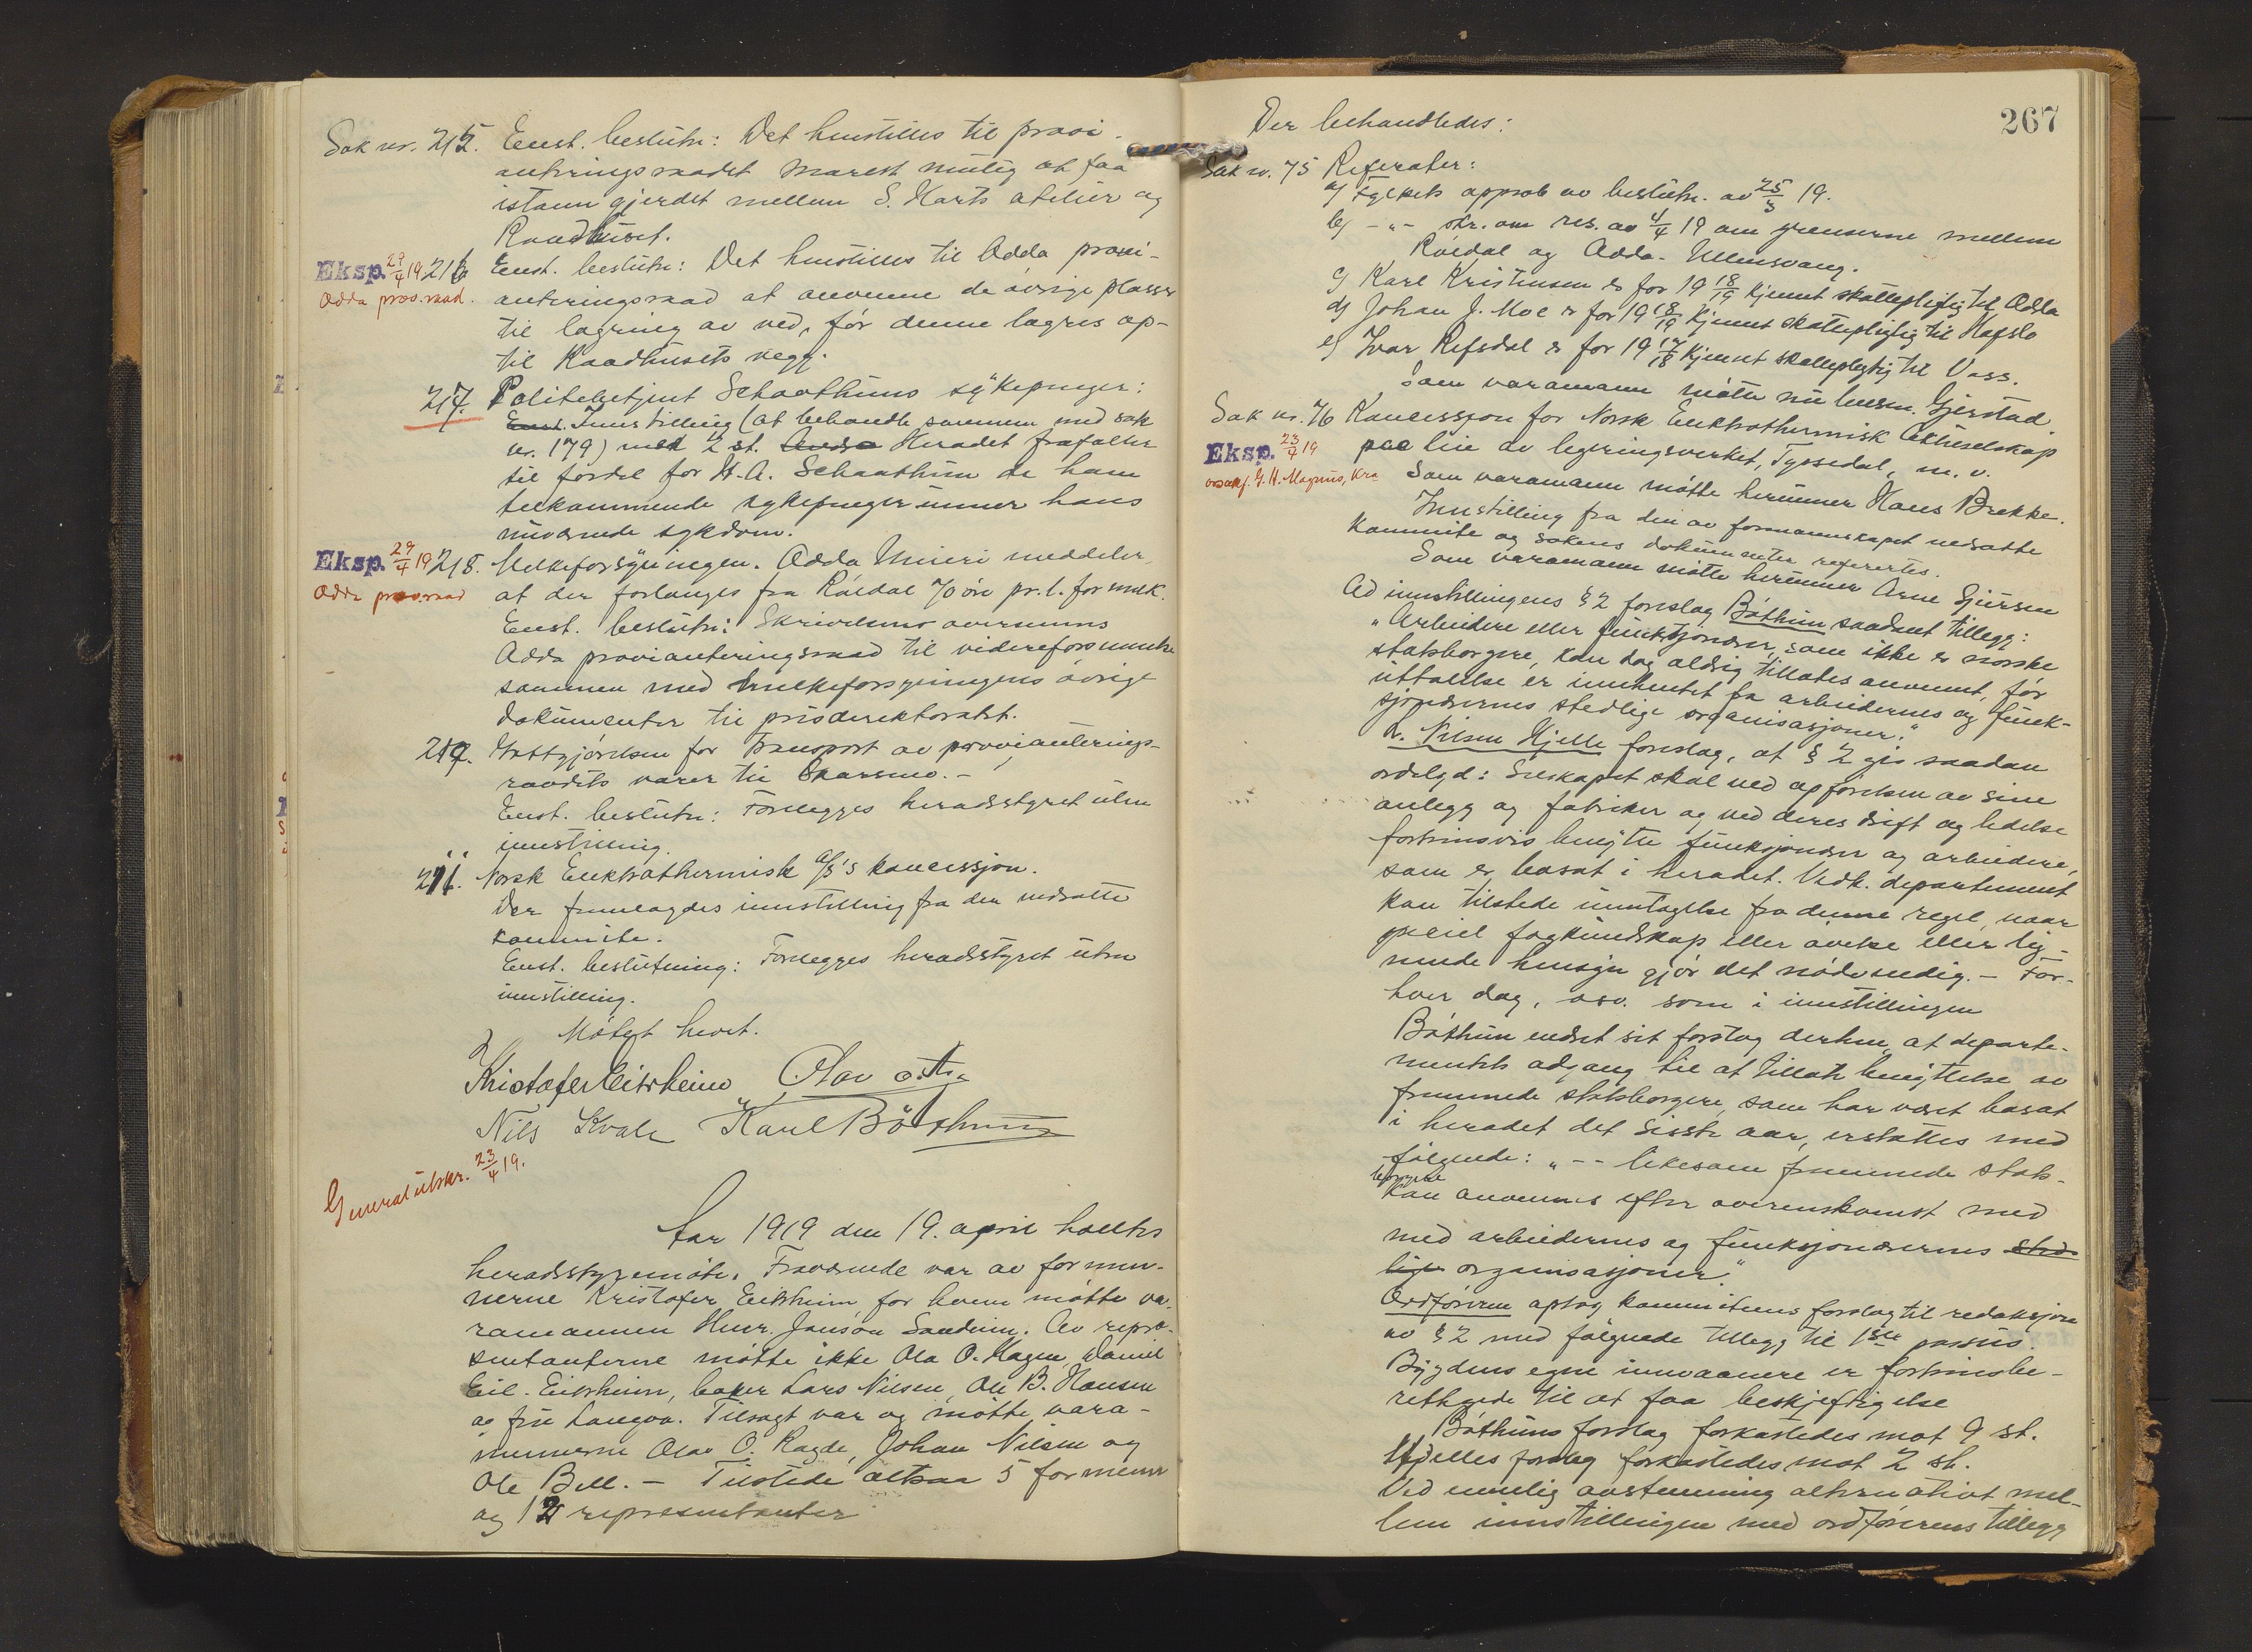 Sak nr. 215. Enst. beslutn: Det henstilles til provi-
anteringsraadet snarest mulig at faa
istann gjerdet mellem S. Harts atelier og
Raadhuset.
Eksp. 29/4 19 216 Enst. beslutn: Det henstilles til Odda provi-
Odda prov.raad. anteringsraad at anvenne de øvrige plasser
til lagring av ved, før denne lagres op-
til Raadhusets vegg.
217. Politibetjent Schaathuns sykepenger:
Enst. Innstilling (at behandle sammen med sak
nr. 179) med 2 st. Heradet frafaller
til fordel for H. A. Schaathun de ham
tilkommende sykepenger unner hans
nuværende sykdom.
Eksp. 29/4 19 218. Melkeforsyningen. Odda Meieri meddeler
Odda prov.raad at der forlanges fra Røldal 70 øre pr. l. for melk.
Enst. beslutn: Skrivelsens oversennes
Odda provianteringsraad til videreforsennelse
sammen med melkeforsyningens øvrige
dokumenter til prisdirektoratet.
219. Gottgjørelsen for transport av provianterings-
raadets varer til Skarsmo. -
Enst. beslutn: Forelegges heradsstyret uten
innstilling.
211. Norsk Elektrothermisk A/S's koncessjon.
Der fremlagdes innstilling fra den nedsatte
kommite.
Enst. beslutning: Forelegges heradsstyret uten
innstilling.
Møtet hevet.
Kristofer Eitrheim Olav
Nils Kvale Karl Bøthun
Generalutskr. 23/4 19.
Aar 1919 den 19. april holltes
heradsstyremøte. Fraværende var av formen-
nerne Kristofer Eitrheim, for hvem møtte va-
ramannen Henr. Janson Sandvin. Av repre-
sentanterne møtte ikke Ola O. Hagen, Daniel
Eil. Eitrheim, baker Lars Nilsen, Ole B. Hansen
og fru Langva. Tilsagt var og møtte vara-
mennerne Olav O. Ragde, Johan Nilsen og
Ole Bell. - Tilstede altsaa 5 formenn
og 12 representanter
267
Der behandledes:
Sak nr. 75 Referater:
a) Fylkets approb av beslutn. av 25/3 19.
b) -"- skr. om res. av 4/4 19 om grenserne mellem
Røldal og Odda - Ullensvang.
c) Karl Kristensen er for 19 18/19 kjennt skattepliktig til Odda
d) Johan J. Moe er for 19 18/19 kjennt skattepliktig til Hafslo
e) Ivar Refsdal er for 19 17/18 kjennt skattepliktig til Voss.
Som varamann møtte nu lensm. Gjerstad.
Sak nr. 76 Koncessjon for Norsk Elektrothermisk Aktieselskap
Eksp. 23/4 19 paa leie av legeringsverket, Tyssedal, m. v.
ovsakf. G. H. Magnus, Kra Som varamann møtte herunner Hans Brekke.
Innstilling fra den av formannskapet nedsatte
kommite og sakens dokumenter refertes.
Som varamann møtte herunner Arne Sjursen
Ad innstillingens § 2 foreslog Bøthun saadant tillegg:
"Arbeidere eller funktjonærer, som ikke er norske
statsborgere, kan dog aldrig tillates anvennt, før
uttalelse er innhentet fra arbeidernes og funk-
sjonærernes stedlige organisasjoner."
L. Nilsen Hjelle foreslog, at § 2 gis saadan
ordelyd: Selskapet skal ved opførelsen av sine
anlegg og fabriker og ved deres drift og ledelse
fortrinsvis benytte funksjonærer og arbeidere,
som er bosat i heradet. Vedk. departement
kan tilstede unntagelse fra denne regel, naar
speciel fagkundskap eller øvelse eller lig-
nende hensyn gjør det nødvendig. - For-
hver dag, osv. som i innstillingen
Bøthun endret sit forslag derhen, at departe-
mentets adgang til at tillate benyttelse av
fremmede statsborgere, som har været bosat
i heradet det sisste aar, erstattes med
følgende: " -- likesom fremmede stats-
borgere
kan anvennes efter overenskomst med
med arbeidernes og funksjonærernes sted-
lige organisasjoner."
Ordføreren optog kommiteens forslag til redaksjon
av § 2 med følgende tillegg til 1ste passus.
Bygdens egne innvaanere er fortrinsbe-
rettigede til at faa beskjeftigelse
Bøthuns forslag forkastedes mot 9 st.
Hjelles forslag forkastedes mot 2 st.
Ved enmelig avstemming alternativt mel-
lem innstillingen med ordførerens tillegg